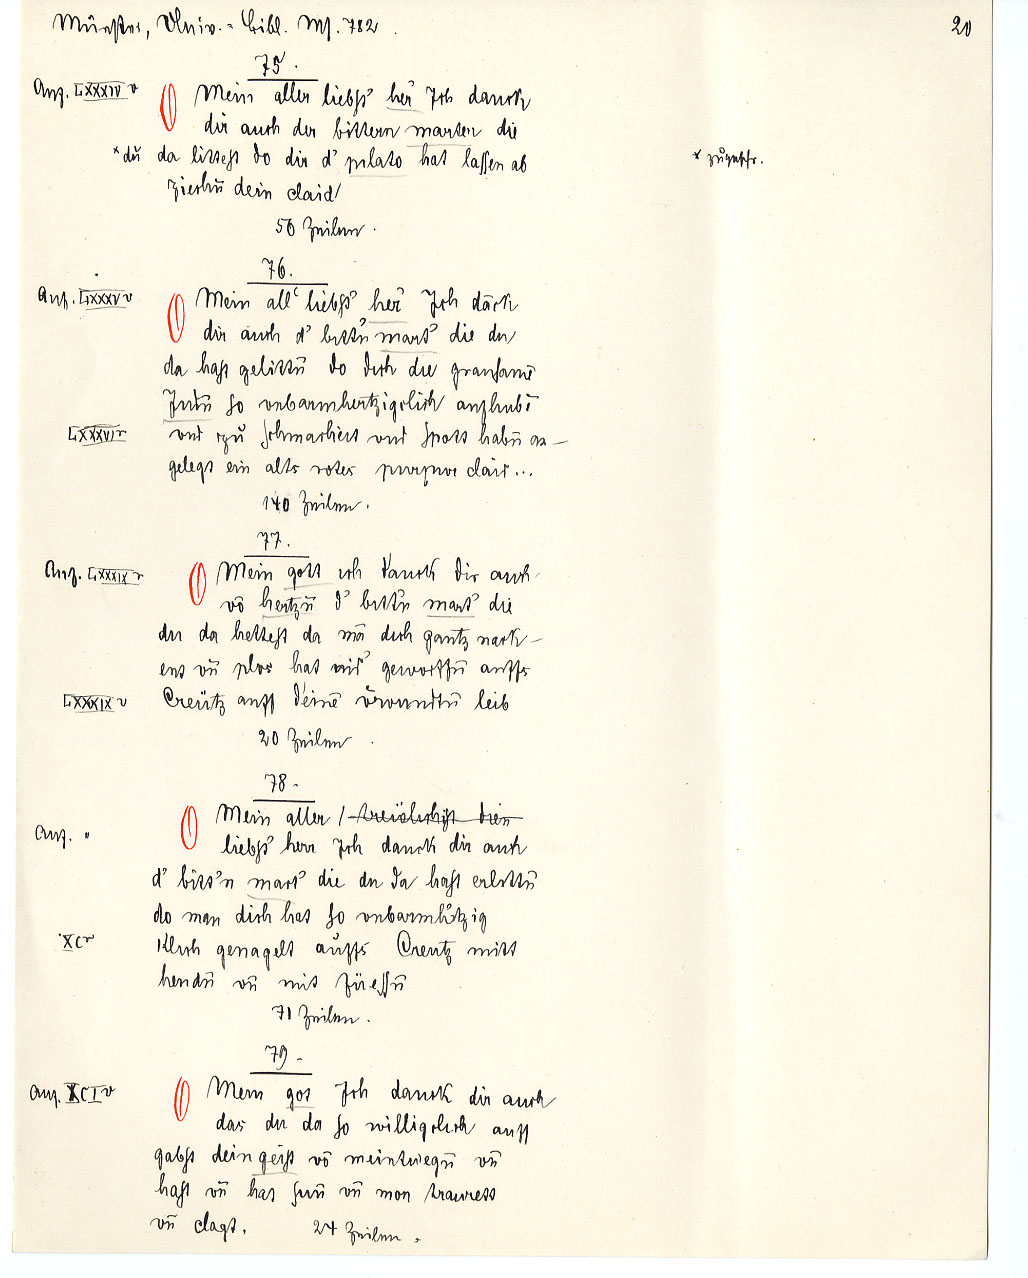 Münster, Univ.-Bibl. Ms. 782. 20
75.
Anf. LXXXIV v O Mein aller liebst' her' Jch danck
dir auch der bittern marter die
*du da littest do dir d' pilato hat lassen ab * zugefügt.
ziehn̄ dein claid/
56 Zeilen.
76.
Anf. LXXXV v O Mein all' liebst' her' Jch dāck
dir auch d' bittn̄ mart' die du
da hast gelittn̄ do dich die grausamē
Judn̄ so vnbarmhertzigclich
LXXXVI r vnd zu schmacheit vnd spott habn̄ an-
gelegt ein alts rotes purpure claid...
140 Zeilen.
77.
Anf. LXXXIX r O Mein gott ich danck dir auch
vō hertzn̄ d' bitt'n mart' die
du da hettest da mā dich gantz nack-
ent vn̄ plos hat nid' geworffn̄ auffs
LXXXIX v Creütz auff deinē v̄wundtn̄ leib
20 Zeilen.
78.
Anf. " O Mein aller /
liebst' herr Jch danck dir auch
d' bitt'n mart' die du da hast erlittn̄
do man dich hat so vnbarmh'tzig
XC r klich genagelt auffs Creutz mitt
hendn̄ vn̄ mit füessn̄
71 Zeilen.
79.
Anf. XCI v O Mein got Jch danck dir auch
das du da so willigclich auff
gabst dein geist vō meintwegn̄ vn̄
hast vn̄ hat sun̄ vn̄ mon traurett
vn̄ clagt. 24 Zeilen.